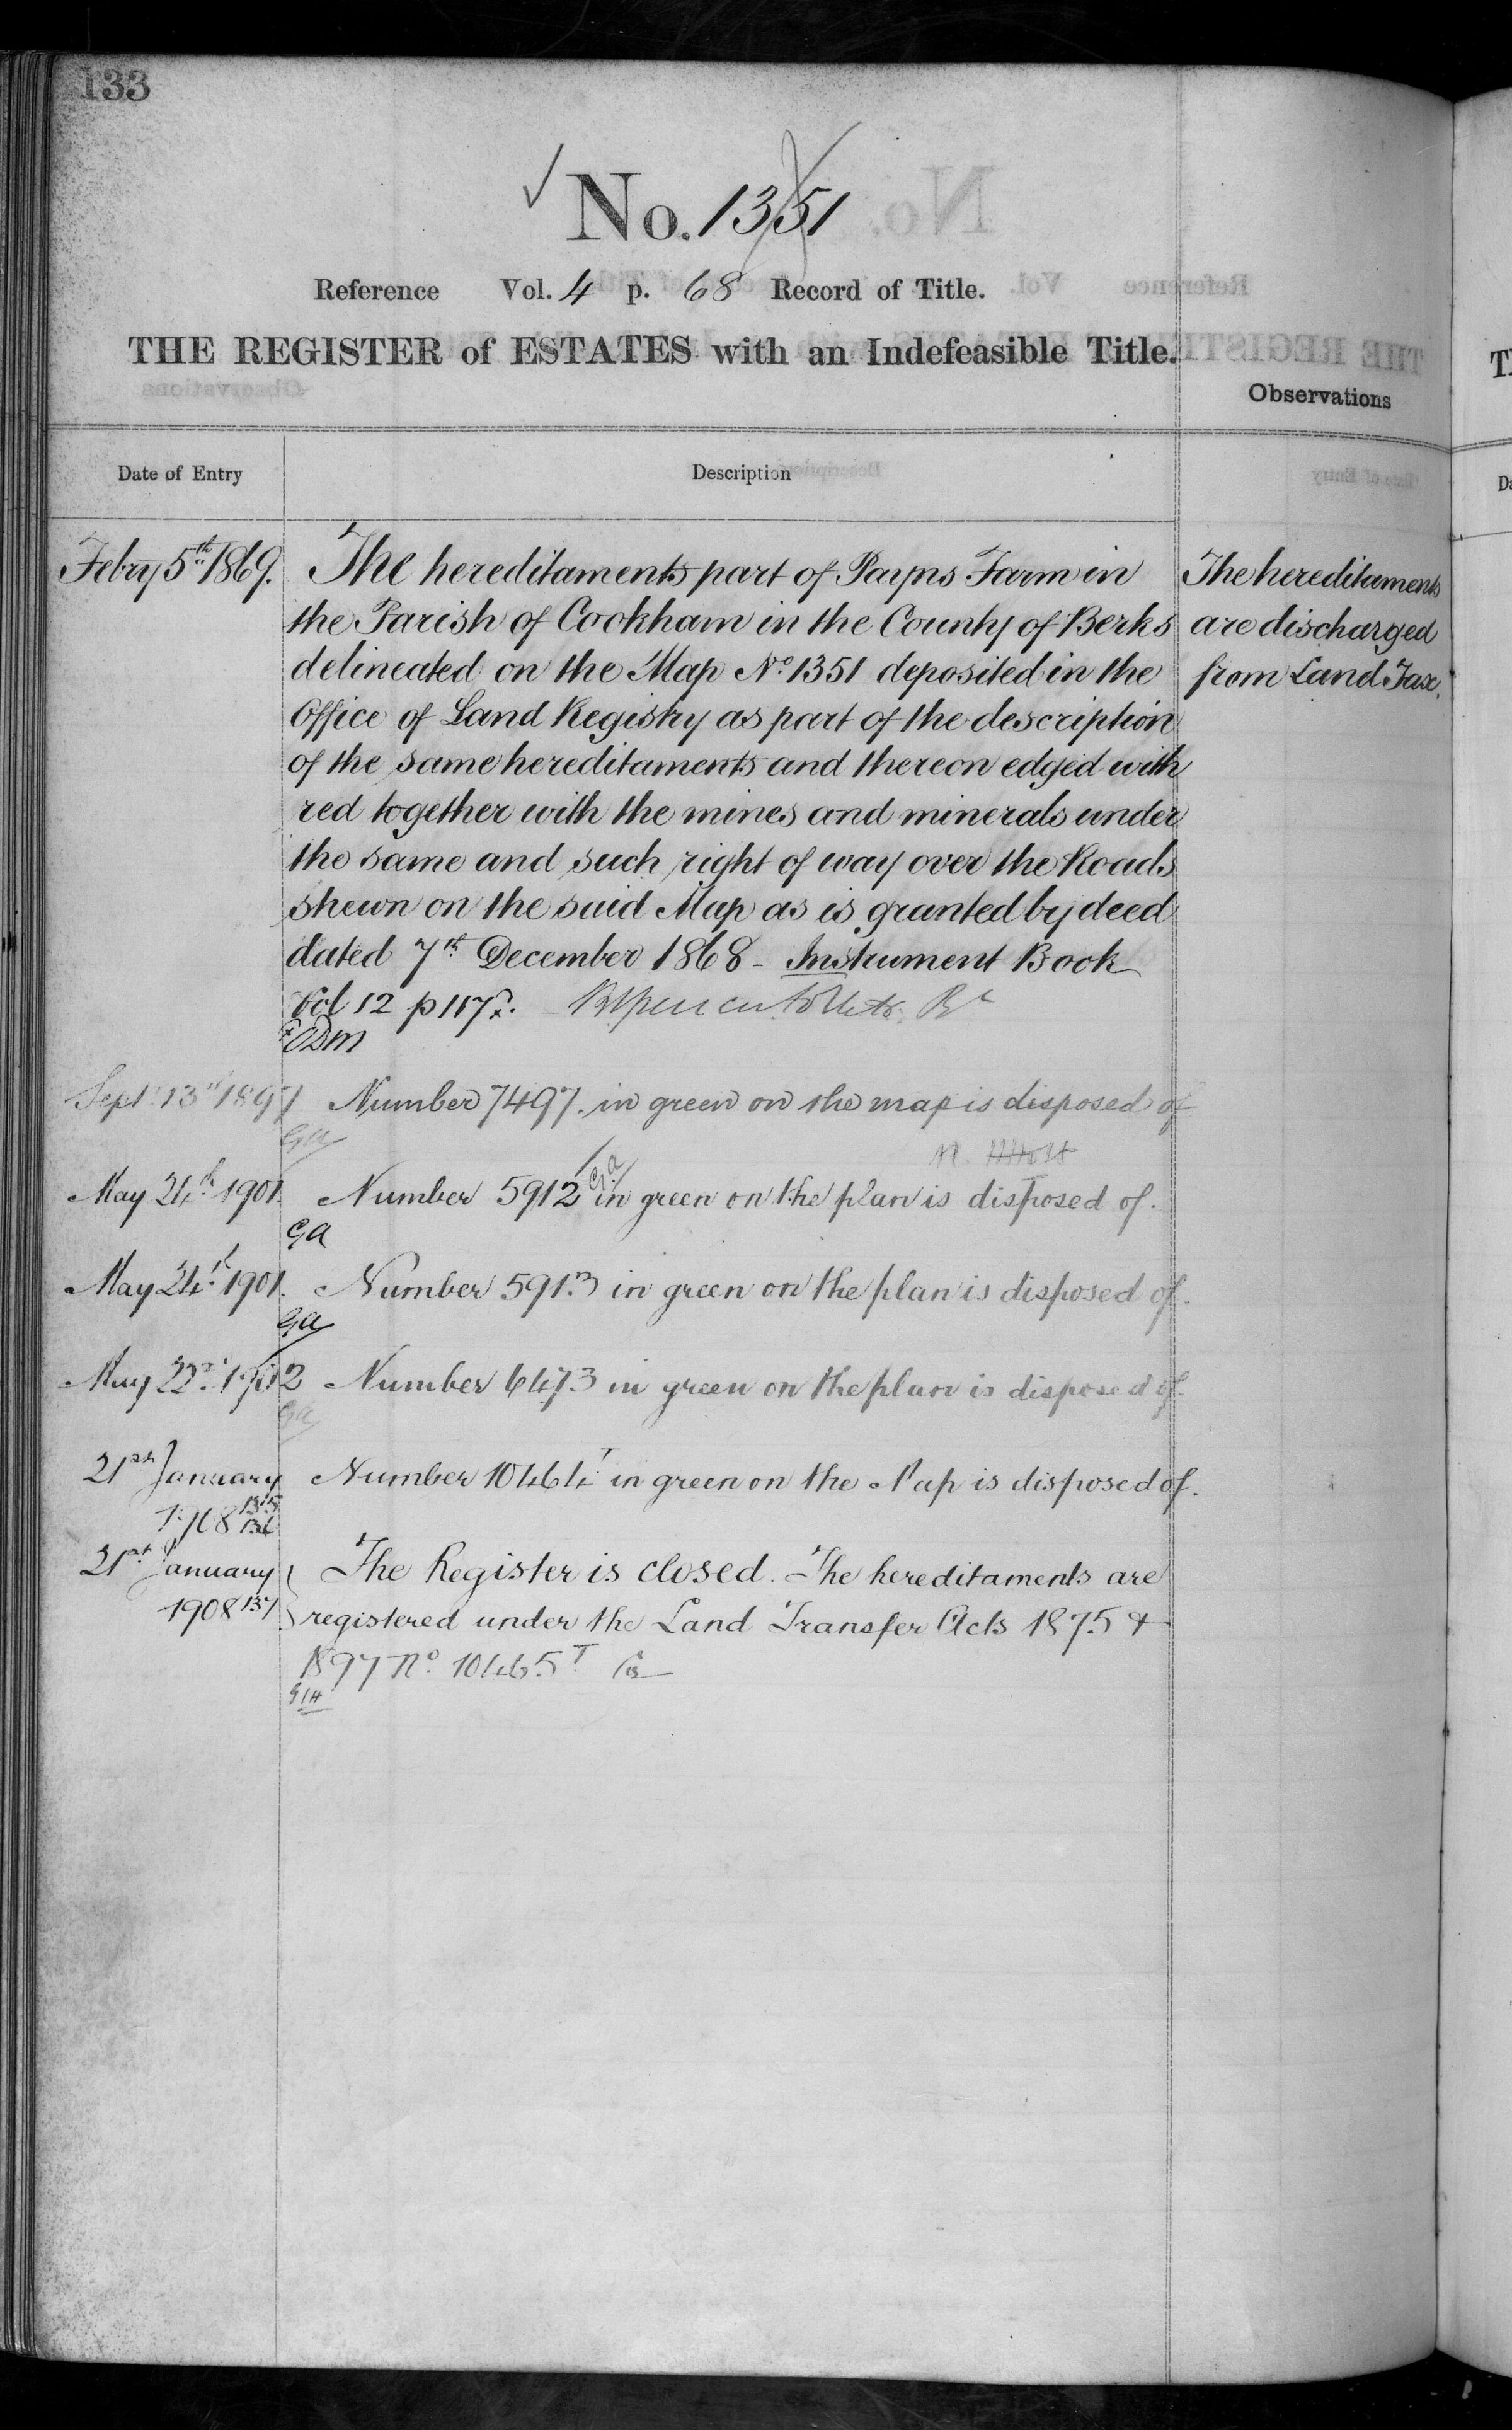 133
No. 1351
Reference Vol. 4 p. 68 Record of Title.
THE REGISTER of ESTATES with an Indefeasible Title.
Observations
Date of Entry
Description
Febry 5th 1869.
The hereditaments part of Payns Farm in
the Parish of Cookham in the County of Berks
delineated on the Map No. 1351 deposited in the
Office of Land Registry as part of the description
of the same hereditaments and thereon edged with
red together with the mines and minerals under
the same and such right of way over the Roads
shewn on the said Map as is granted by deed
dated 7th December 1868 - Instrument Book
Vol 12 p 117
The hereditaments
are discharged
from Land Tax.
Sept. 13th 1897
Number 7497. in green on the map is disposed of
GA
May 24th 1901.
Number 5912 in green on the plan is disposed of.
GA
GA
May 24th 1901.
Number 5913 in green on the plan is disposed of.
GA
May 22nd 1902
Number 6473 in green on the plan is disposed of.
GA
21st January
1908 135
136
Number 10464T in green on the Map is disposed of.
21st January
1908 137
The Register is closed. The hereditaments are
registered under the Land Transfer Acts 1875 &
1897 No. 10465T